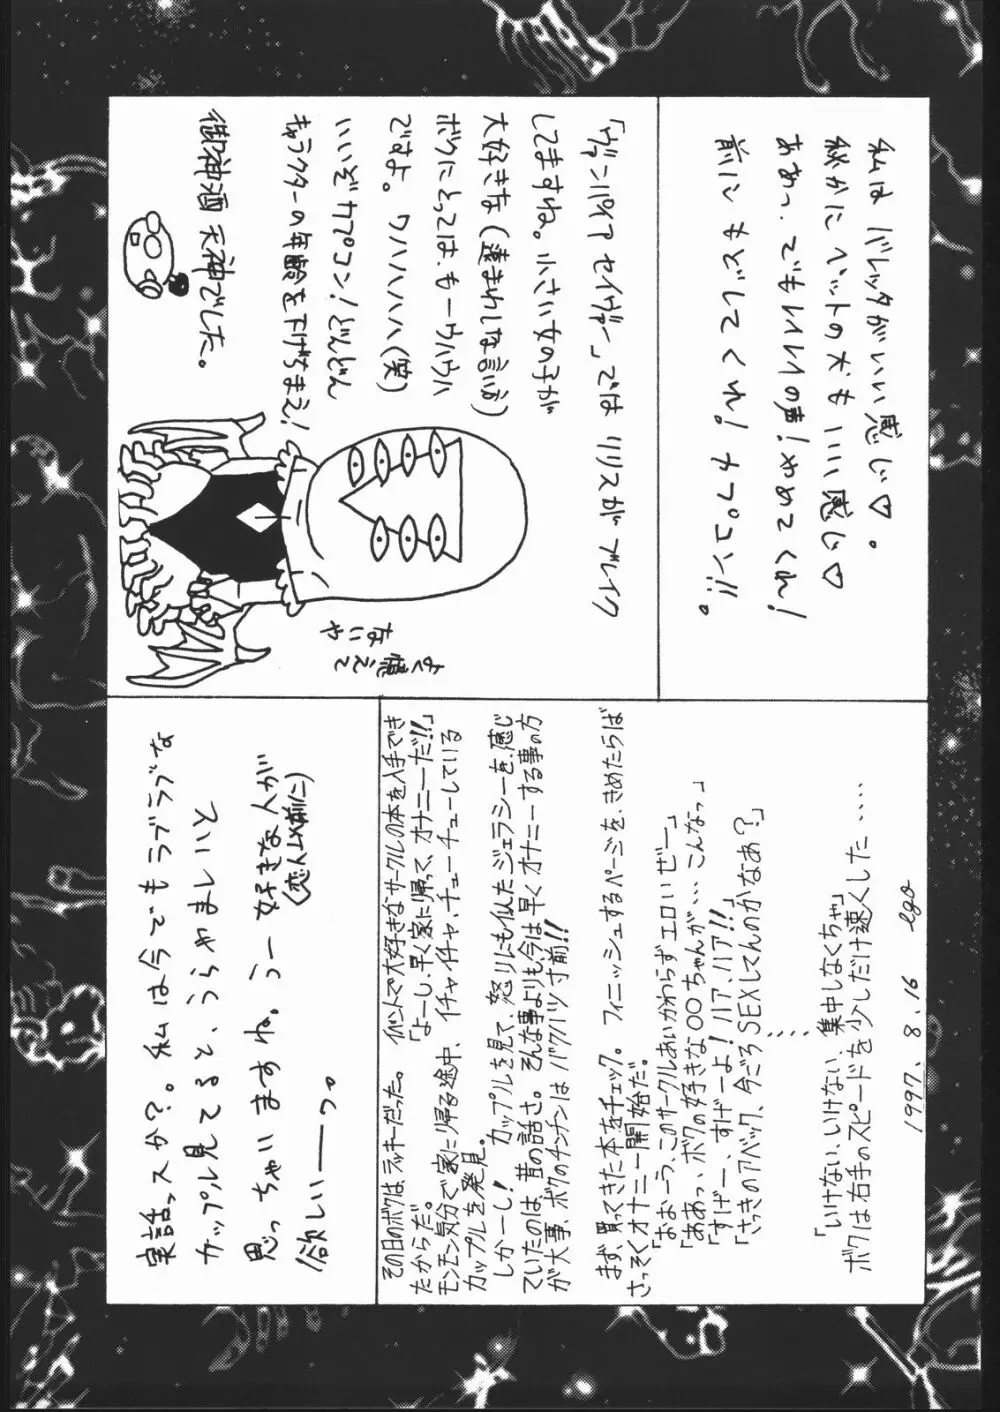 私はバレッタがいい感じ♡。
秘かにペットの犬もいい感じ♡
「ヴァンパイア セイヴァー」では リリスが ブレイク
してますね。小さい女の子が
大好きな(遠まわしな言い方)
ボクにとっては、も一ウハウハ
ですよ。ワハハハハハ(笑)
いいぞカプコン!どんどん
キャラクターの年齢を下げちまえ!
御神酒 天神でした。
よく憶えて
ないや
その日のボクは、ラッキーだった。 イベントで大好きなサークルの本を入手でき
たからだ。「よーし、早く家に帰って、オナニーだ!!」
モンモン気分で家に帰る途中、イチャイチャ、チューチューしている
カップルを発見。
しかーし! カップルを見て、怒りにも似たジェラシーを、感じ
ていたのは、昔の話さ。そんな事よりも、今は早くオナニーする事の方
が大事、ボクのチンチンはバクハツ寸前!!
まず、買ってきた本をチェック。 フィニッシュするページを、きめたらば
さっそくオナニー開始だ。
「おおーう、このサークルあいかわらずエロいぜー」
「ああっ、ボクの好きな○○ちゃんが、、、こんなっ」
「すげー、すげーよ!ハア、ハア!!」
「さっきのアベック、今ごろSEXしてんのかなあ?」
「いけない、いけない、集中しなくちゃ」
ボクは右手のスピードを少しだけ速くした、、、、
1997. 8. 16 ego
実話っスか?。私は今でもラブラブな
カップル見てると、うらやましいいと
思っちゃいますね。うー 好きな人が
(恋人以前に)
欲しいーっ。